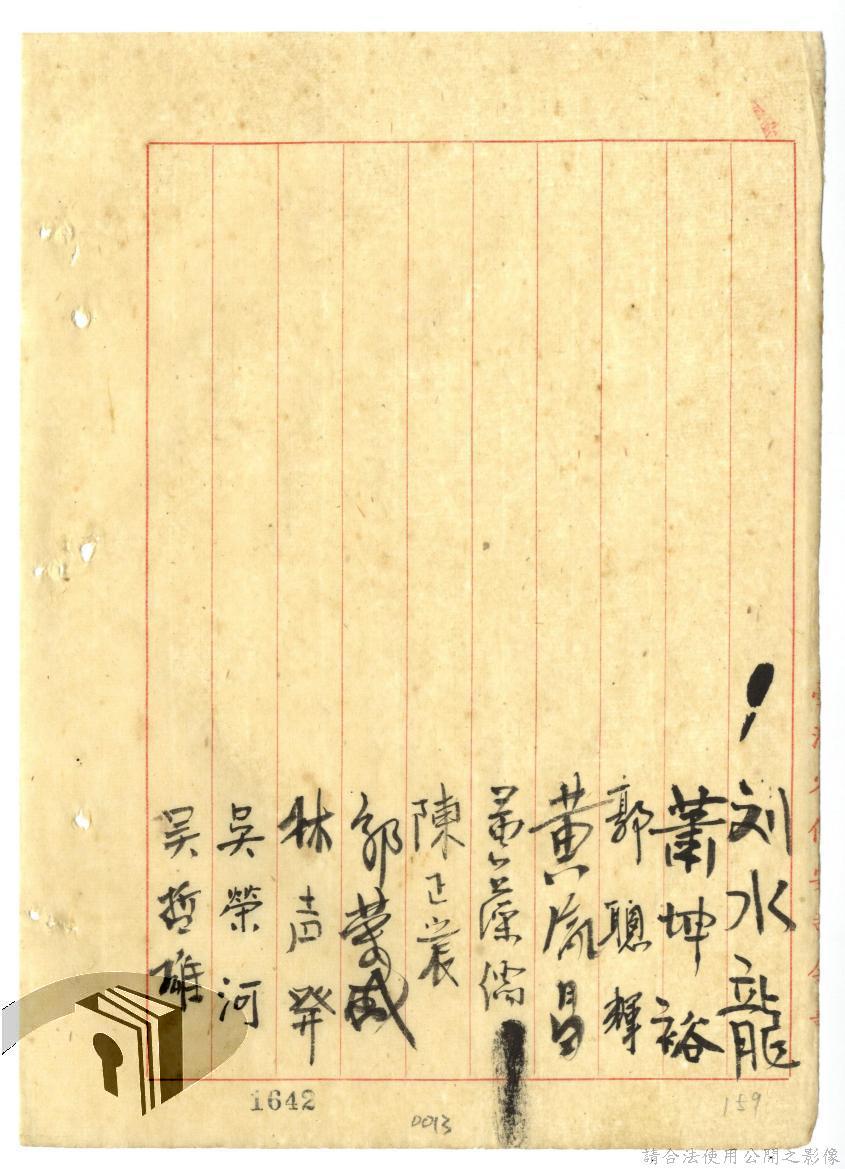 刘水龍
蕭坤裕
郭聰輝
黃胤昌
黃藻儒
陳正宸
郭榮
林声発
吳榮河
吴哲雄
1642
0093
159
請合法使用公開之影像